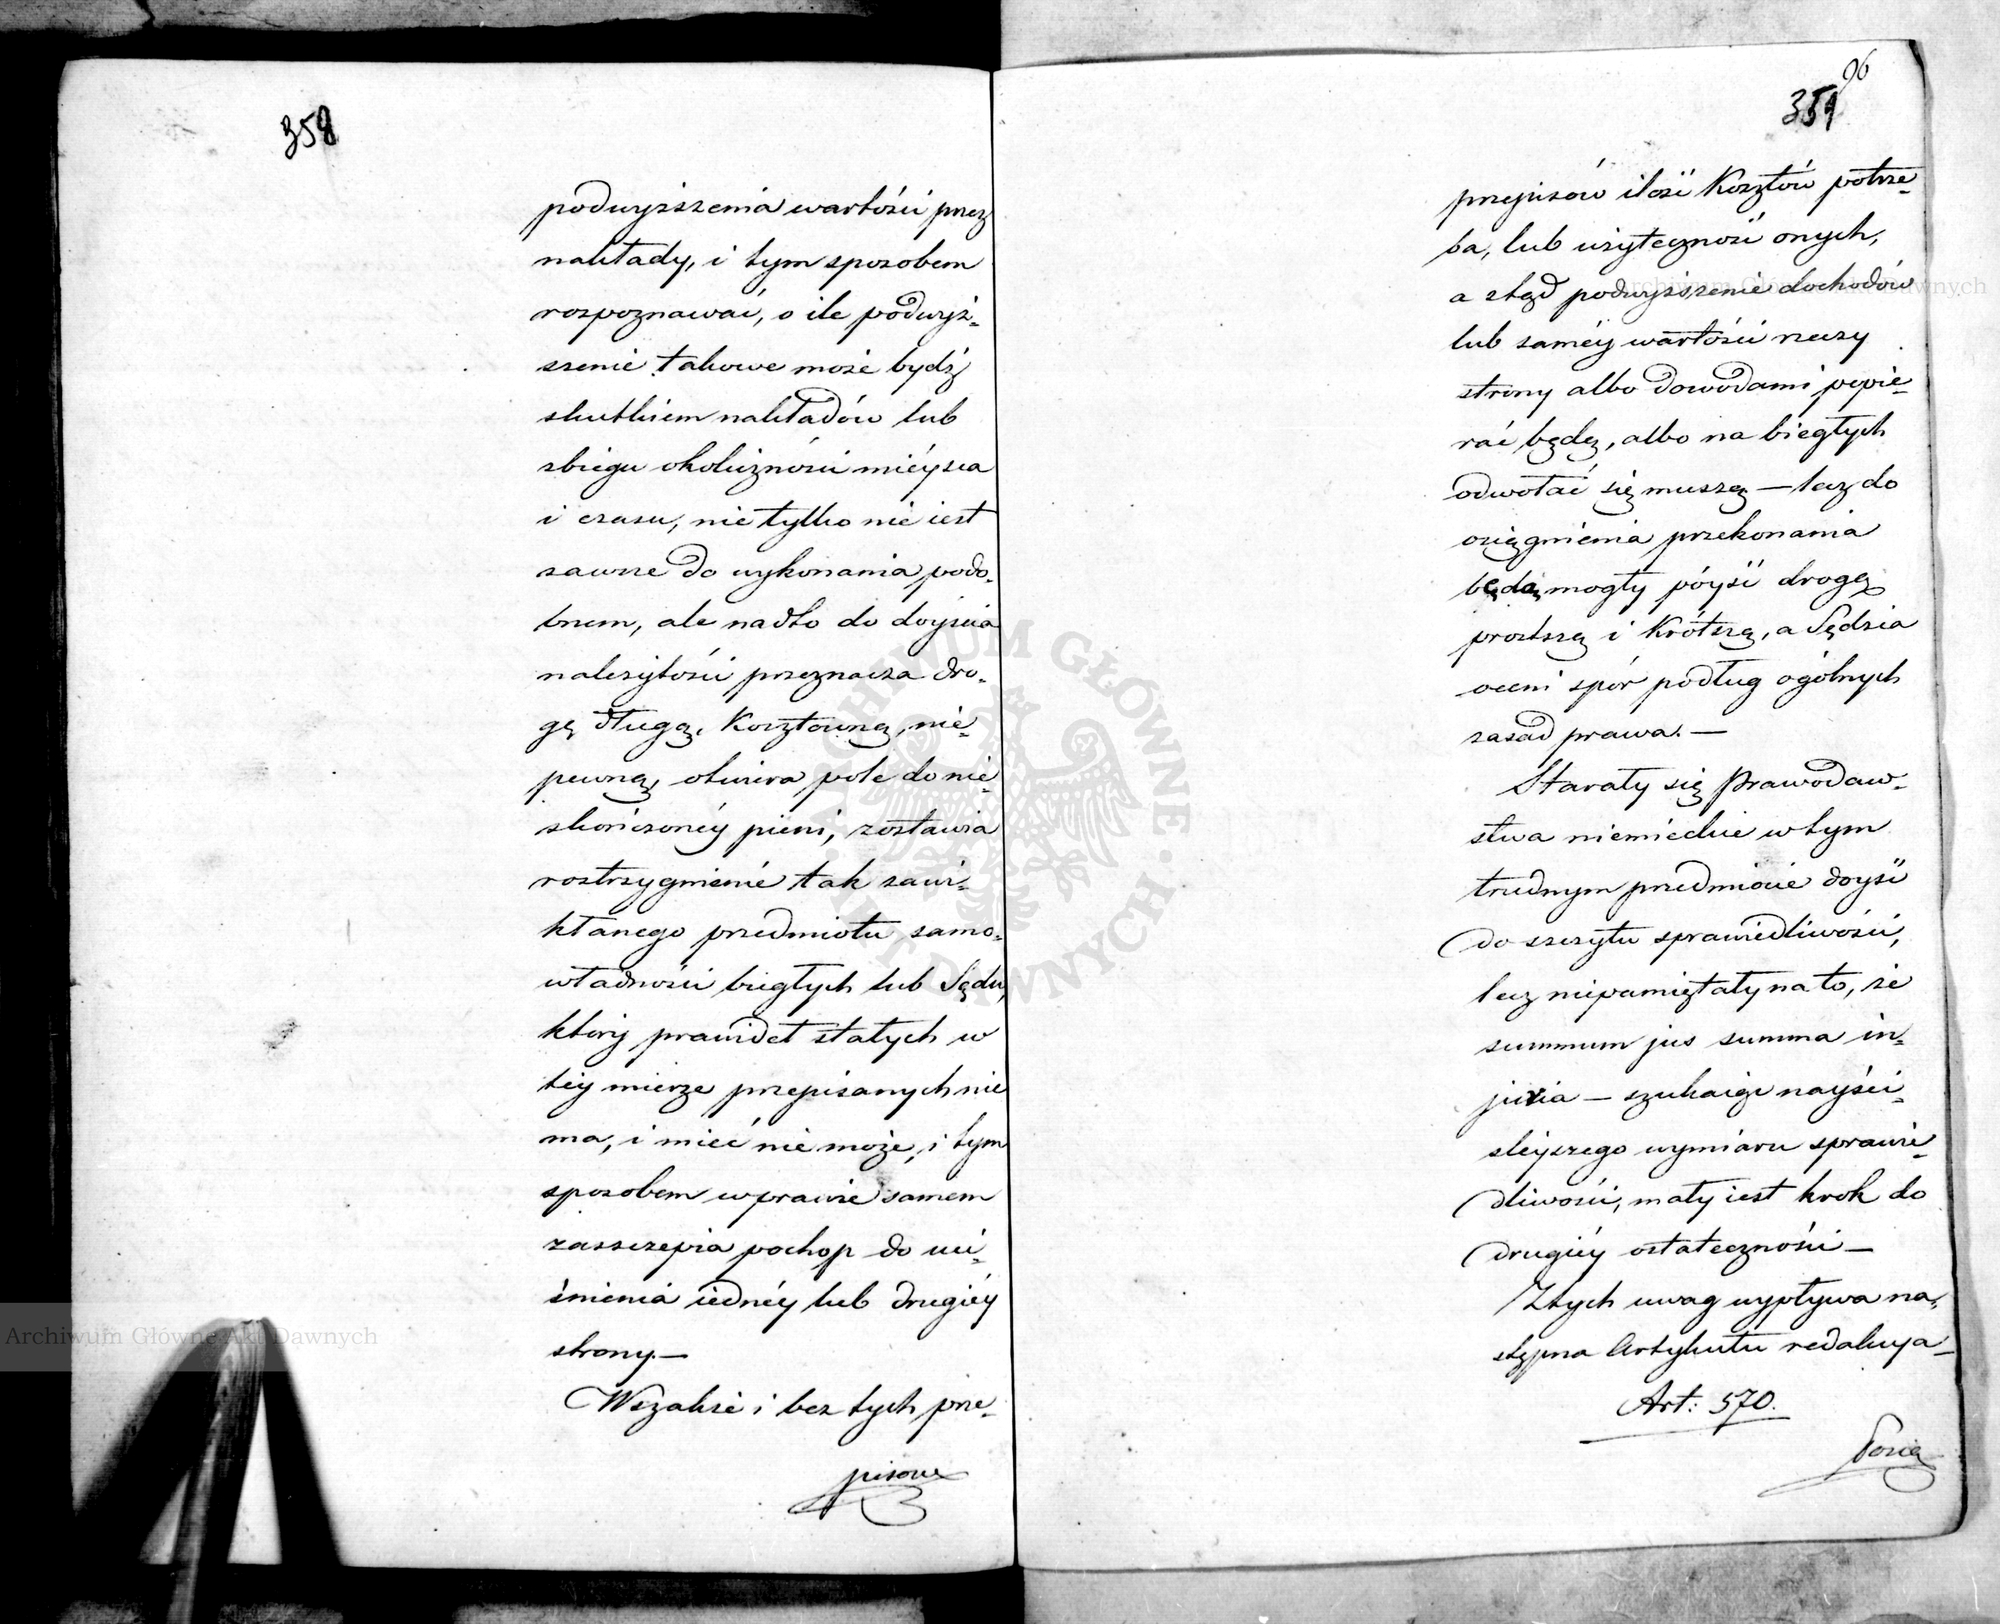 358
podwyższenia wartości przez
nakłady, i tym sposobem
rozpoznawać, o ile podwyż-
szenie takowe może bydź
skutkiem nakładów lub
zbiegu okoliczności mieysca
i czasu, nie tylko nie iest
zawsze do wykonania podo-
bnem, ale nadto do doyścia
należytości przeznacza dro-
gę długą, Kosztowną, nie-
pewną, otwiera pole do nie-
skończonéy pieni, zostawia
rostrzygnienie tak zawi-
kłanego przedmiotu samo-
władności biegłych lub Sądu,
który prawideł stałych w
téy mierze przepisanych nie
ma, i mieć nie może, i tym
sposobem w prawie samem
zaszczepia pochop do uci-
śnienia iednéy lub drugiéy
strony.—
Wszakże i bez tych prze-
pisów
96
359
przepisów ilość Kosztów potrze-
ba, lub użyteczność onych,
a ztąd podwyższenie dochodów
lub saméy wartości rzeczy
strony albo dowodami popie-
rać będą, albo na biegłych
odwołać się muszą — lecz do
osiągnienia przekonania
będą mogły póyść drogą
prostszą i Krótszą, a Sędzia
oceni spór podług ogólnych
zasad prawa. —
Starały się Prawodaw-
stwa niemieckie w tym
trudnym przedmiocie doyść
do szczytu sprawiedliwości,
lecz niepamiętały na to, że
summum jus summa in-
juria — szukaiąc nayści-
śleyszego wymiaru sprawie-
dliwości, mały iest krok do
drugiéy ostateczności —
Z tych uwag wypływa na-
stępna Artykułu redakcya —
Art: 570.
Archiwum Główne Akt Dawnych
Archiwum Główne Akt Dawnych
ARCHIWUM GŁÓWNE AKT DAWNYCH